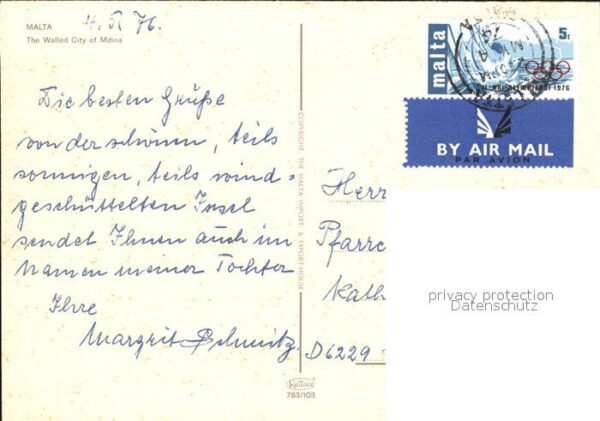 MALTA
The Walled City of Mdina
4. 5. 76.
Die besten Grüße
von der schönen, teils
sonnigen, teils wind=
geschüttelten Insel
sendet Ihnen auch im
Namen meiner Tochter
Ihre
Margrit Schmitz.
COPYRIGHT THE MALTA IMPORT & EXPORT HOUSE
Kruger
783/103
malta
5c
1976
BY AIR MAIL
PAR AVION
Herr
Pfarre
Kath
D6229
privacy protection
Datenschutz